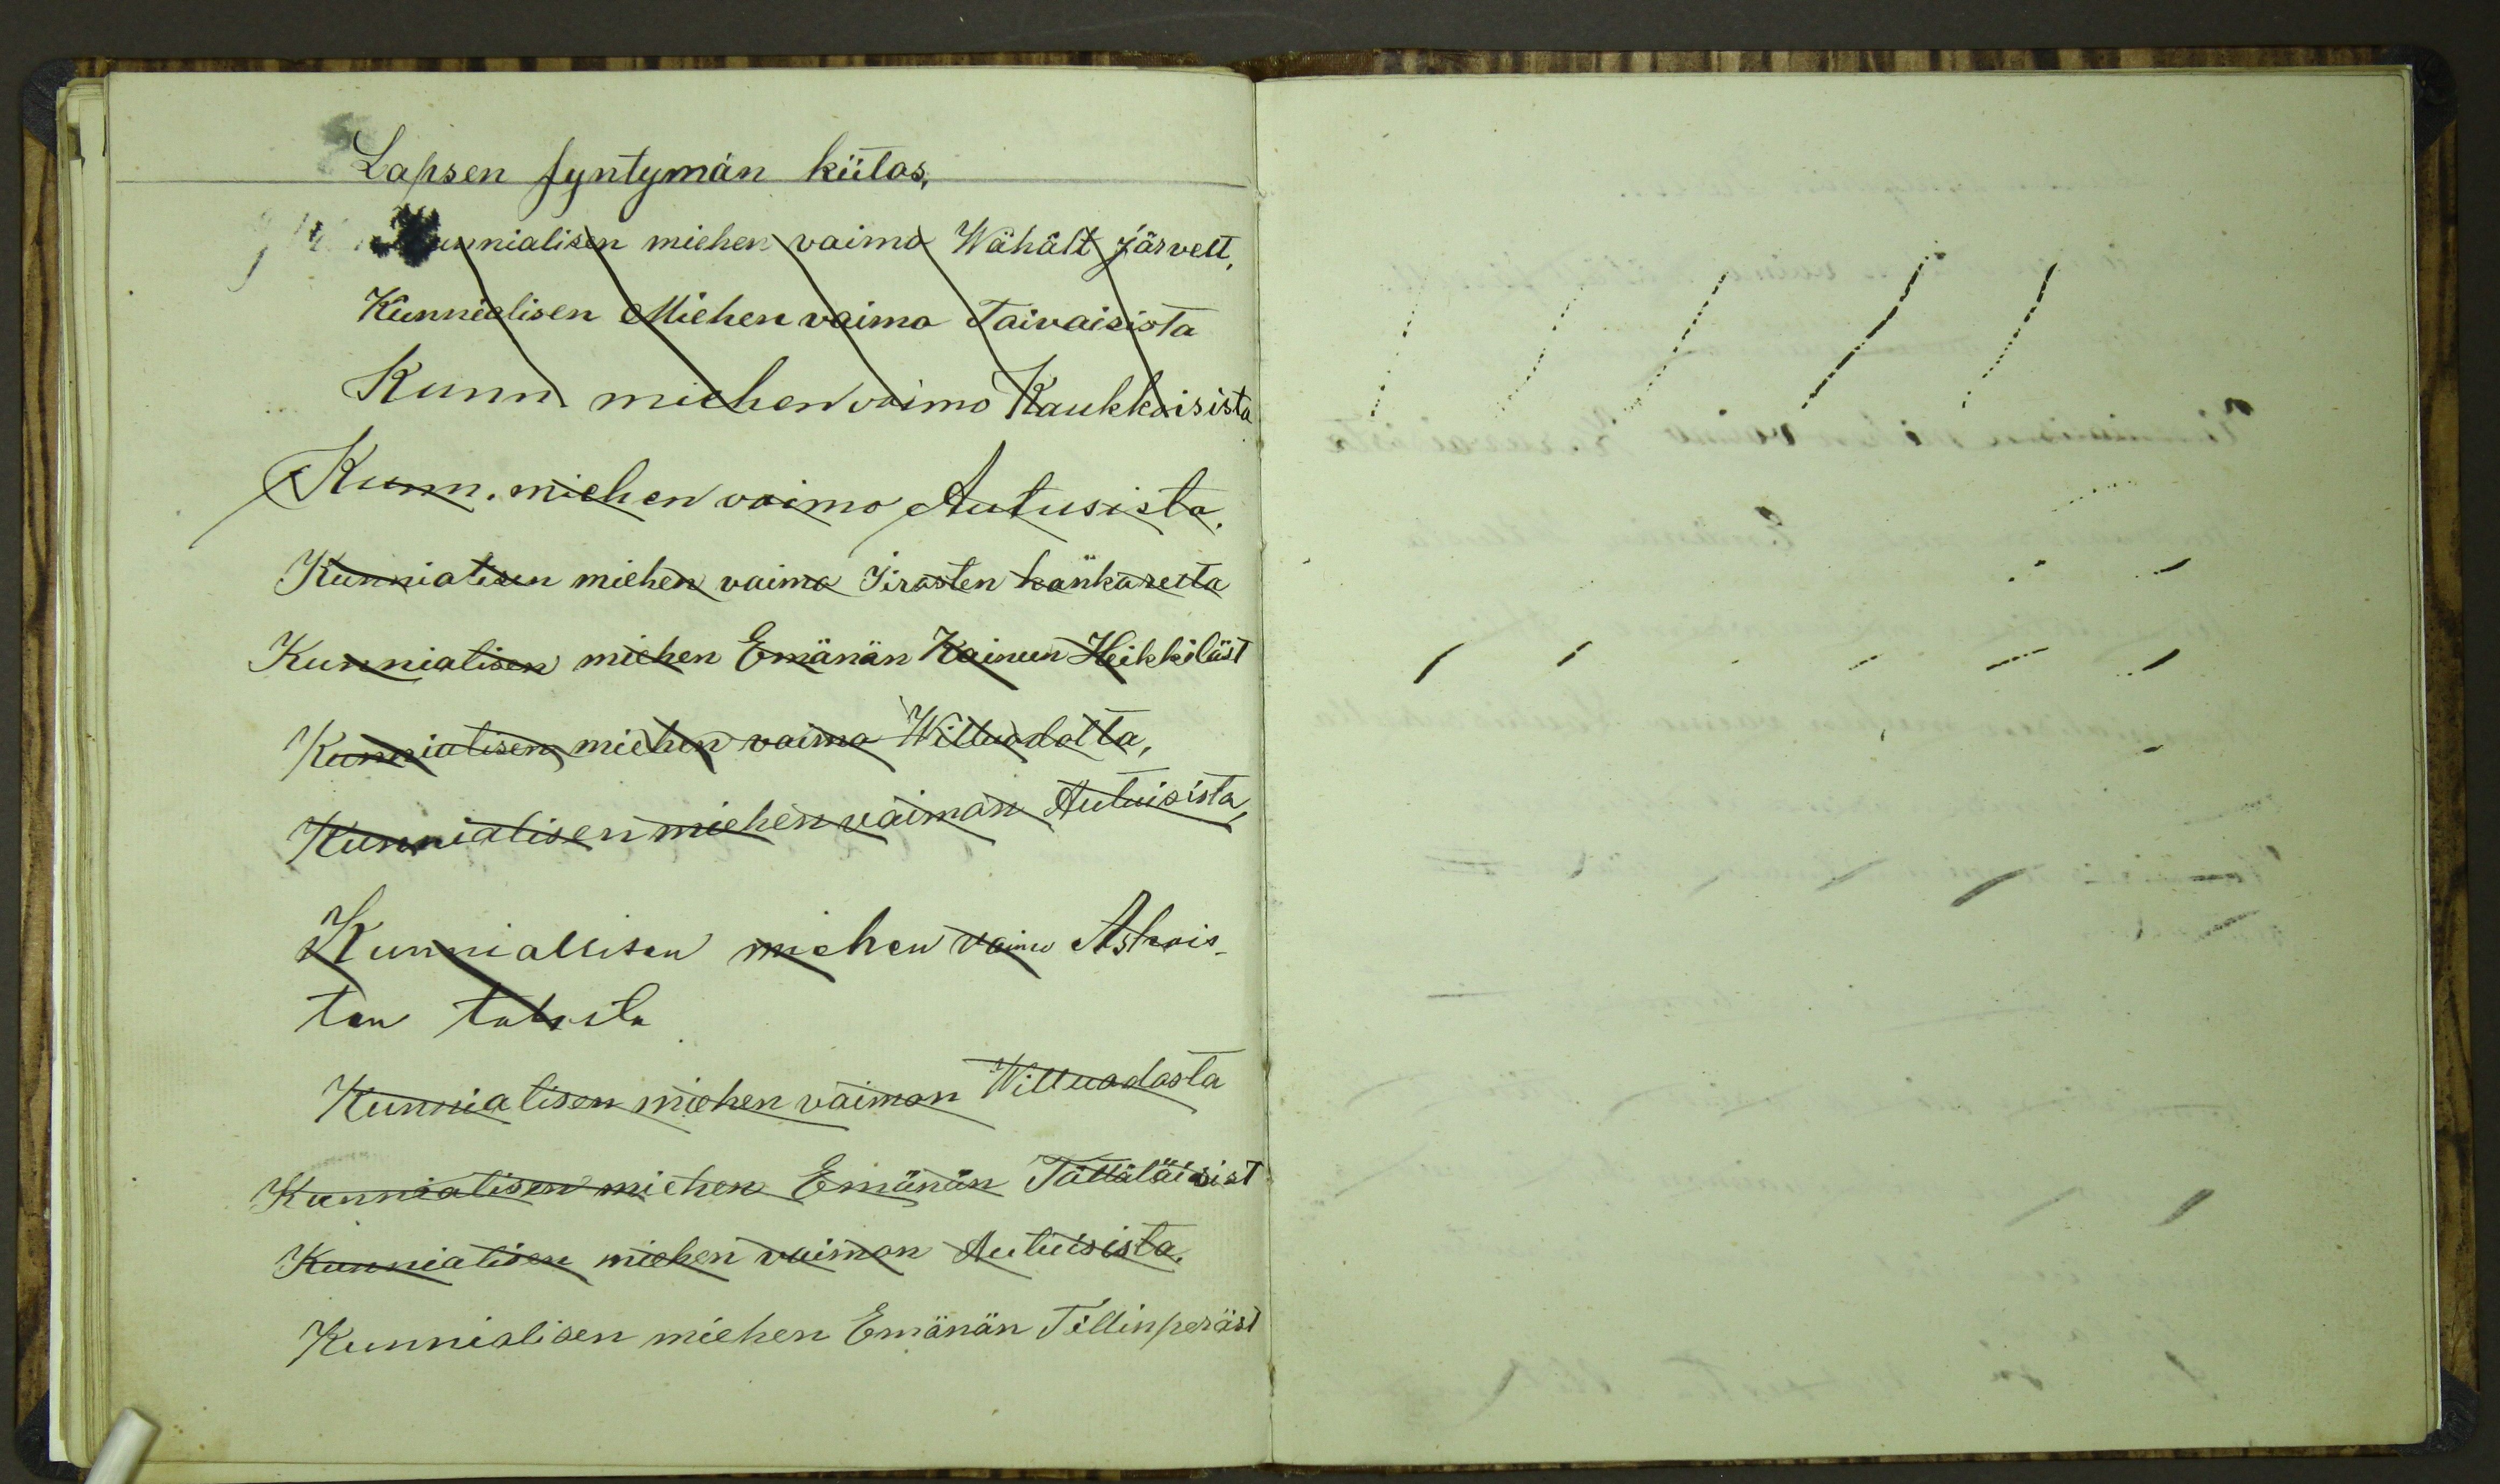 Lapsen syntymän kiitos,
Kunnialisen miehen vaimo Wähält Järvelt,
Kunnialisen Miehen vaimo Taivaisista
Kunn. miehen vaimo Kaukkoisista
Kunn. miehen vaimo Autusista.
Kunnialisen miehen vaimo Iirasten kankaresta
Kunnialisen miehen Emänän Kainun Heikkiläst
Kunnialisen miehen vaimo Willuodolta,
Kunnialisen miehen vaiman Autuisista,
Kunniallisen miehen vaimo Askais-
ten talosta
Kunnialisen miehen vaimon Willuodosta
Kunnialisen miehen Emänän Tättäläisist
Kunnialisen miehen vaimon Autuisista.
Kunnialisen miehen Emänän Tillinperäst